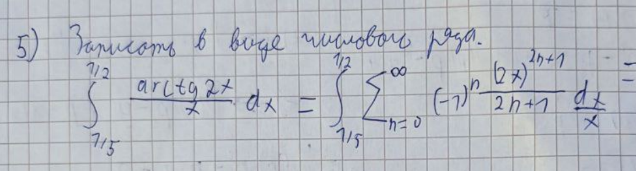 5) Записать в виде числового ряда.
∫_{1/5}^{1/2} arctg 2x / x dx = ∫_{1/5}^{1/2} ∑_{n=0}^{∞} (-1)^n (2x)^{2n+1} / 2n+1 dx / x =